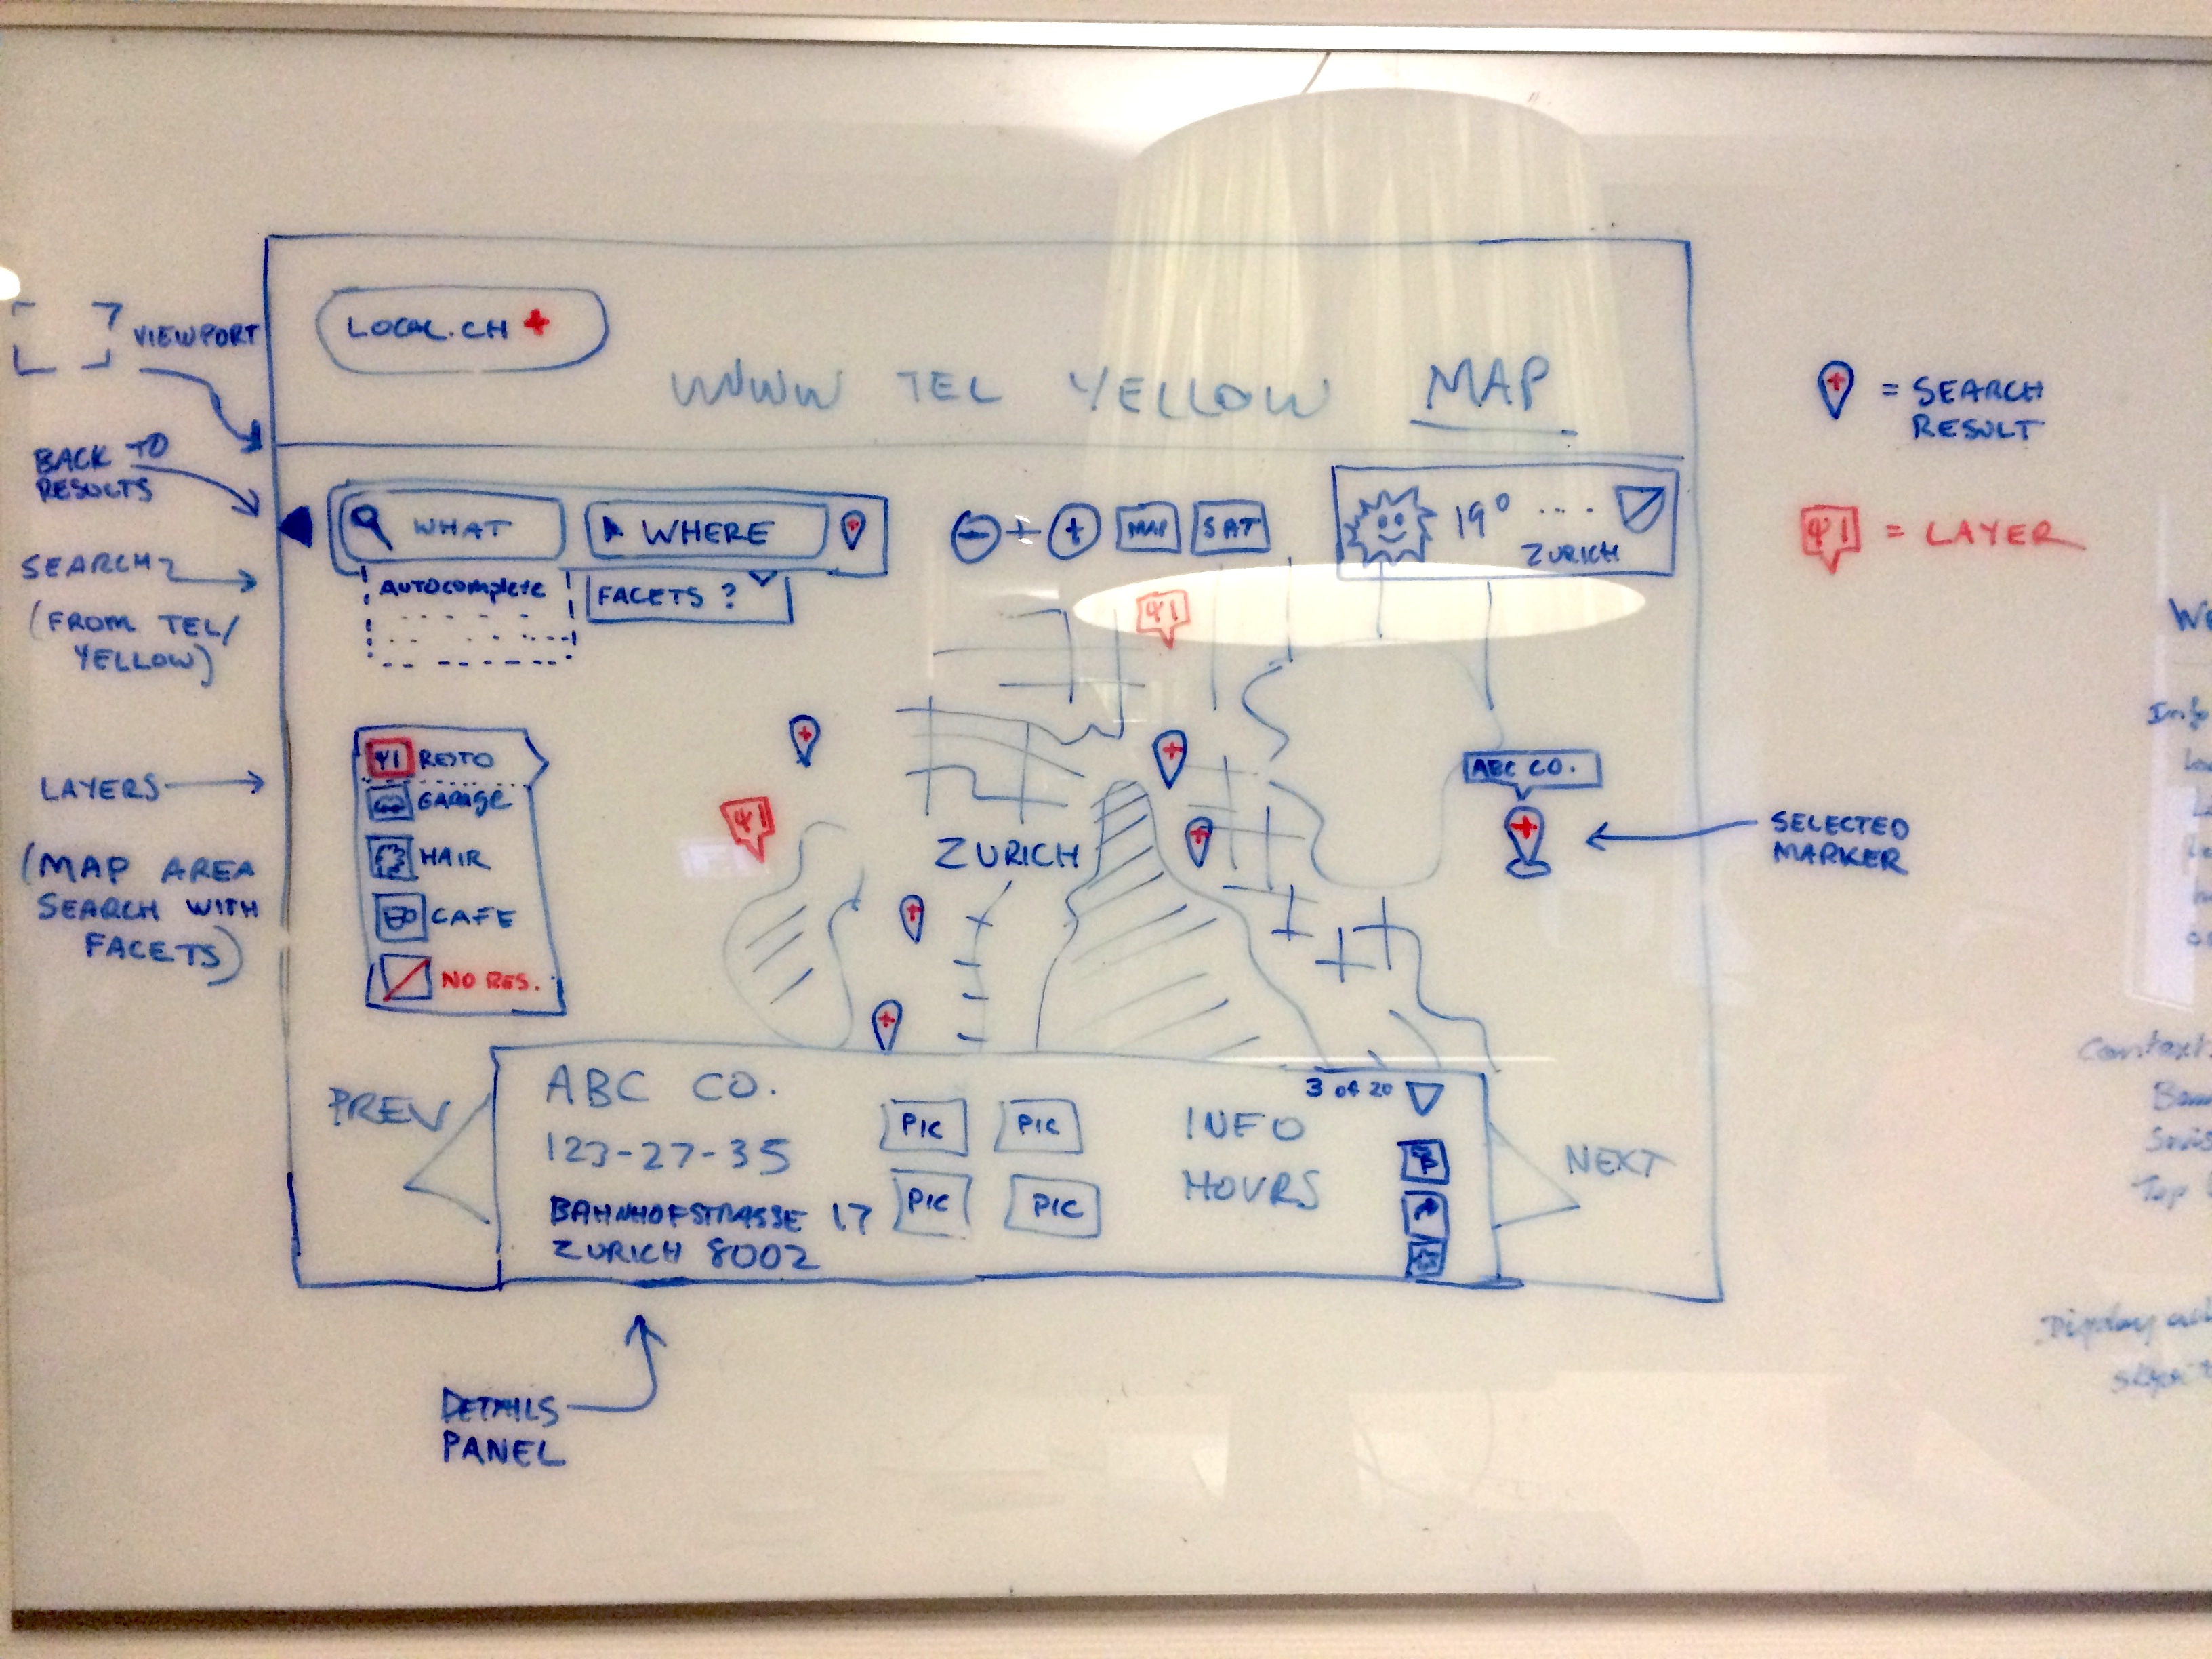 VIEWPORT
BACK TO
RESULTS
SEARCH
(FROM TEL/
YELLOW)
LAYERS
(MAP AREA
SEARCH WITH
FACETS)
LOCAL.CH
WWW TEL YELLOW MAP
WHAT
WHERE
MAP
SAT
19° ....
ZURICH
AUTOCOMPLETE
FACETS ?
RESTO
GARAGE
HAIR
CAFE
NO RES.
ZURICH
ABC CO.
PREV
ABC CO.
123-27-35
BAHNHOFSTRASSE 17
ZURICH 8002
PIC
PIC
PIC
PIC
INFO
HOURS
3 of 20
NEXT
DETAILS
PANEL
= SEARCH
RESULT
= LAYER
SELECTED
MARKER
Display